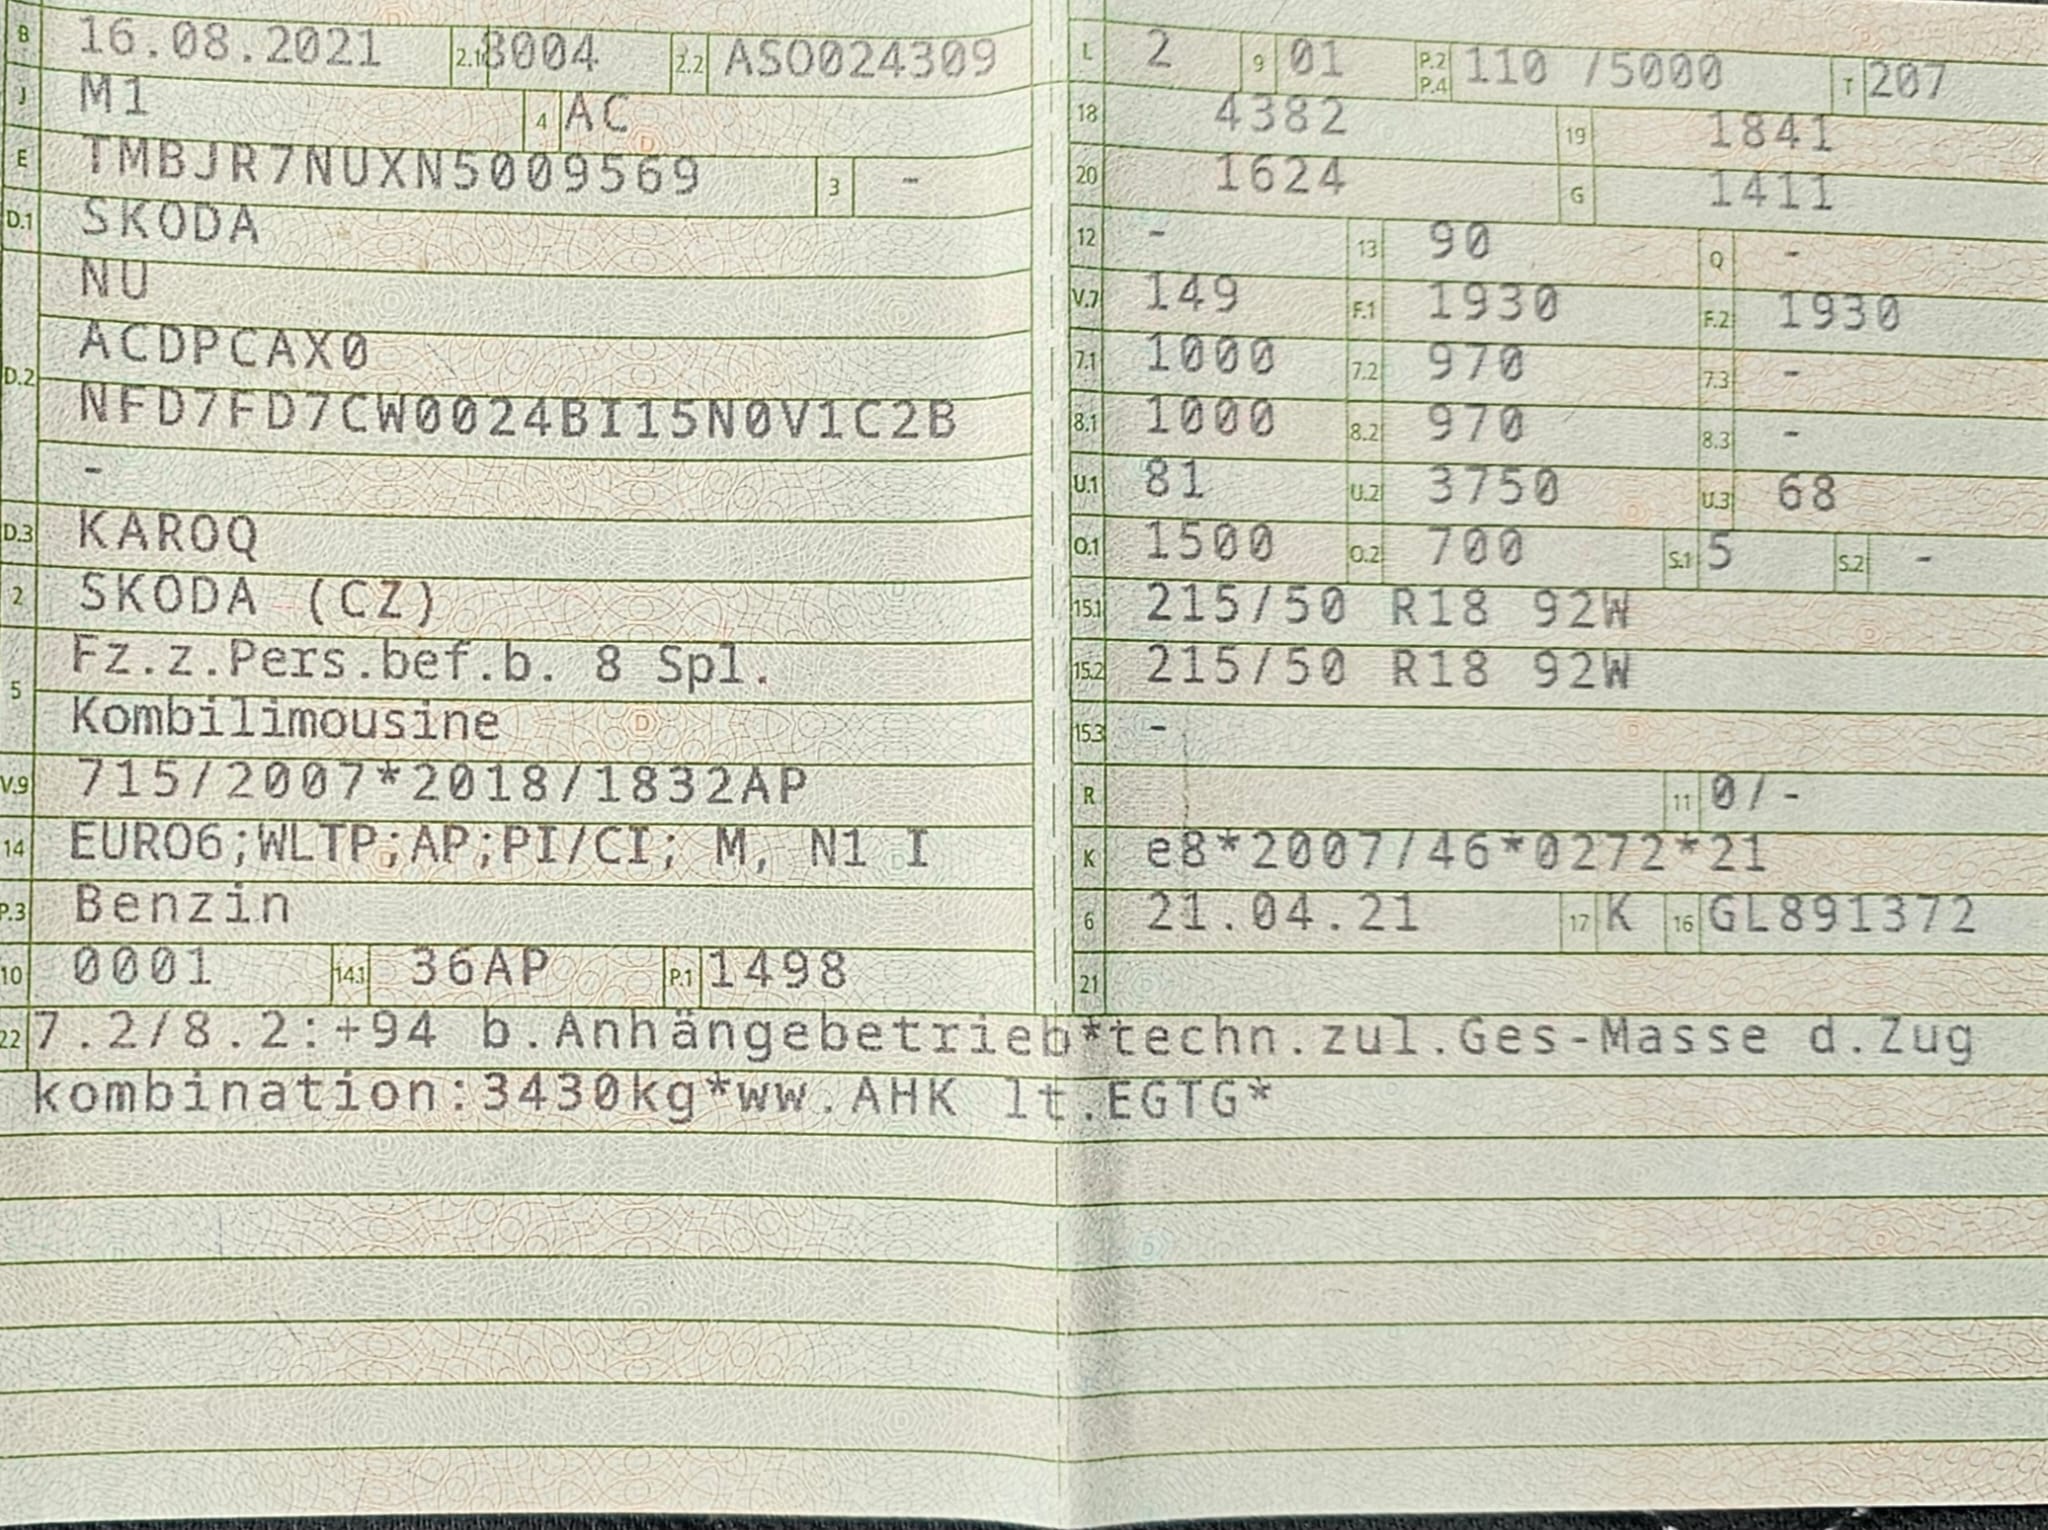 B 16.08.2021 2.1 8004 2.2 ASO024309
J M1 4 AC
E TMBJR7NUXN5009569 3 -
D.1 SKODA
NU
D.2 ACDPCAX0
NFD7FD7CW0024BI15N0V1C2B
-
D.3 KAROQ
2 SKODA (CZ)
5 Fz.z.Pers.bef.b. 8 Spl.
Kombilimousine
V.9 715/2007*2018/1832AP
14 EURO6;WLTP;AP;PI/CI; M, N1 I
P.3 Benzin
10 0001 14.1 36AP P.1 1498
L 2 9 01 P.2 P.4 110 /5000 T 207
18 4382 19 1841
20 1624 G 1411
12 - 13 90 Q -
V.7 149 F.1 1930 F.2 1930
7.1 1000 7.2 970 7.3 -
8.1 1000 8.2 970 8.3 -
U.1 81 U.2 3750 U.3 68
O.1 1500 O.2 700 S.1 5 S.2 -
15.1 215/50 R18 92W
15.2 215/50 R18 92W
15.3 -
R 11 0/-
K e8*2007/46*0272*21
6 21.04.21 17 K 16 GL891372
21
22 7.2/8.2:+94 b.Anhängebetrieb*techn.zul.Ges-Masse d.Zug
kombination:3430kg*ww.AHK lt.EGTG*